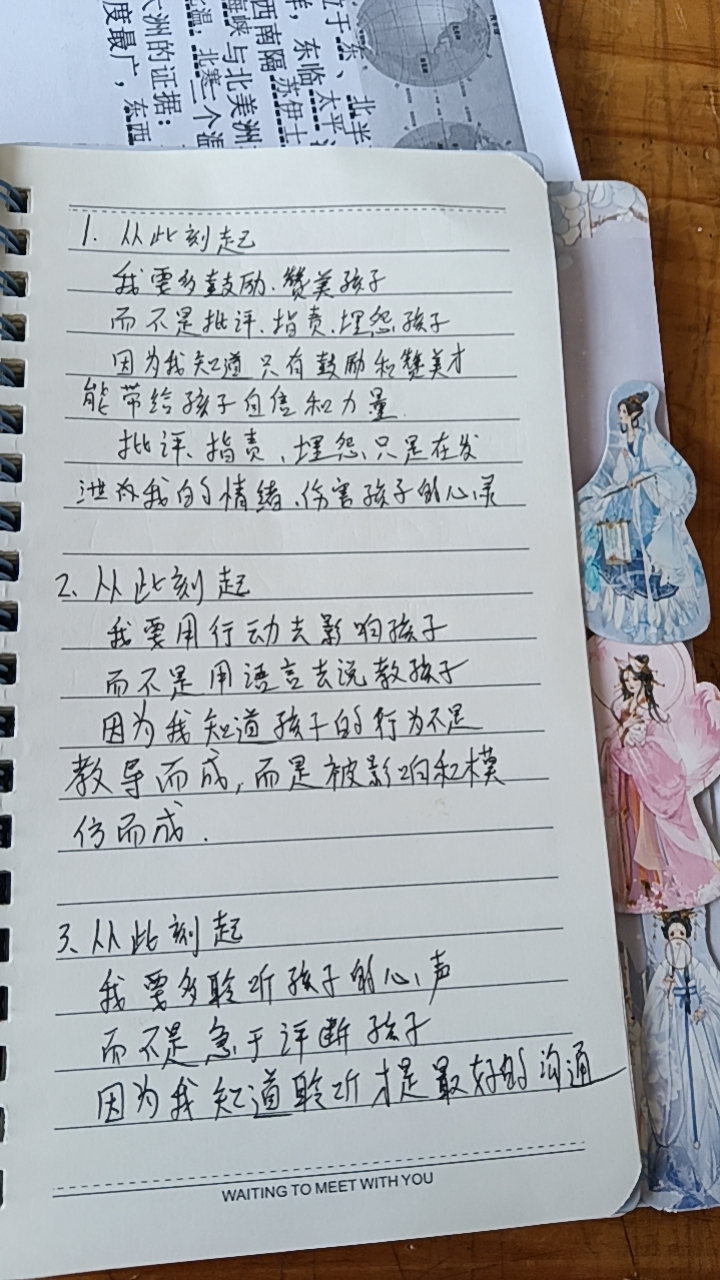 位于东、北半
洋，东临太平
西南隔苏伊士
海峡与北美洲
温：北寒二个温
大洲的证据：
度最广，东西
1. 从此刻起
我要多鼓励、赞美孩子
而不是批评、指责、埋怨孩子
因为我知道只有鼓励和赞美才
能带给孩子自信和力量.
批评、指责、埋怨只是在发
泄我的情绪、伤害孩子的心灵
2. 从此刻起
我要用行动去影响孩子
而不是用语言去说教孩子
因为我知道孩子的行为不是
教导而成,而是被影响和模
仿而成.
3. 从此刻起
我要多聆听孩子的心声
而不是急于评断孩子
因为我知道聆听才是最好的沟通
WAITING TO MEET WITH YOU